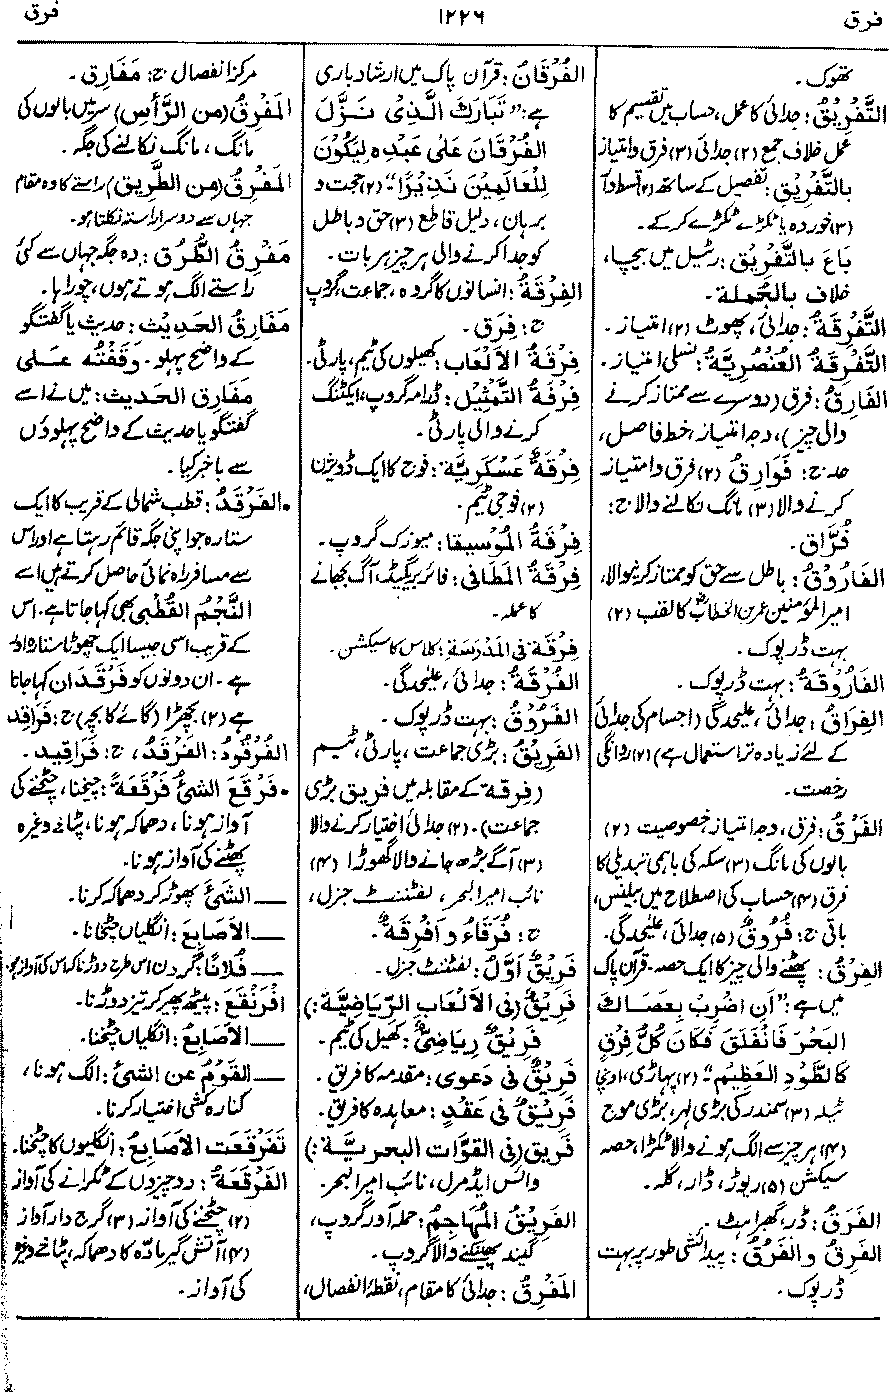 فرق ۱۲۲۶ فرق
تھوک۔
التَّفْرِيْقُ: جدائی کا عمل، حساب میں تقسیم کا
عمل خلاف جمع (۲) جدائی (۳) فرق و امتیاز
بالتَّفْرِيْقِ: تفصیل کے ساتھ (۲) قسط وار
(۳) خوردہ یا ٹکڑے ٹکڑے کرکے۔
بَاعَ بالتَّفْرِيْقِ: رٹیل میں بیچا،
خلاف بالجُملة۔
التَّفْرِقَةُ: جدائی، پھوٹ (۲) امتیاز۔
التَّفْرِقَةُ العُنْصُرِيَّةُ: نسلی امتیاز۔
الفَارِقُ: فرق (دوسرے سے ممتاز کرنے
والی چیز)، وجہ امتیاز، خط فاصل،
حد ج: فَوَارِقُ (۲) فرق و امتیاز
کرنے والا (۳) مانگ نکالنے والا ج:
فُرَّاق۔
الفَارُوْقُ: باطل سے حق کو ممتاز کرنیوالا،
امیر المؤمنین عمر بن الخطابؓ کا لقب (۲)
بہت ڈرپوک۔
الفَارُوْقَةُ: بہت ڈرپوک۔
الفِرَاقُ: جدائی، علیحدگی (اجسام کی جدائی
کے لئے زیادہ تر استعمال ہے) (۲) روانگی
رخصت۔
الفَرْقُ: فرق، وجہ امتیاز، خصوصیت (۲)
بالوں کی مانگ (۳) سکہ کی باہمی تبدیلی کا
فرق (۴) حساب کی اصطلاح میں بیلنس،
باقی ج: فُرُوْقٌ (۵) جدائی، علیحدگی۔
الفِرْقُ: پھٹنے والی چیز کا ایک حصہ۔ قرآن پاک
میں ہے: "اَنِ اضْرِبْ بِعَصَاكَ
البَحْرَ فَانْفَلَقَ فَكَانَ كُلُّ فِرْقٍ
كَالطَّوْدِ العَظِيْمِ" (۲) پہاڑی، اونچا
ٹیلہ (۳) سمندر کی بڑی لہر، بڑی موج
(۴) ہر چیز سے الگ ہونے والا ٹکڑا، حصہ
سیکشن (۵) ریوڑ، ڈار، گلہ۔
الفَرَقُ: ڈر، گھبراہٹ۔
الفَرِقُ والفَرُقُ: پیدائشی طور پر بہت
ڈرپوک۔
الفُرْقَانُ: قرآن پاک میں ارشاد باری
ہے: "تَبَارَكَ الَّذِیْ نَزَّلَ
الفُرْقَانَ عَلٰى عَبْدِهٖ لِيَكُوْنَ
لِلْعَالَمِيْنَ نَذِيْرًا" (۲) حجت و
برہان، دلیل قاطع (۳) حق و باطل
کو جدا کرنے والی ہر چیز، ہر بات۔
الفِرْقَةُ: انسانوں کا گروہ، جماعت، گروپ
ج: فِرَق۔
فِرْقَةُ الاَلْعَاب: کھیلوں کی ٹیم، پارٹی۔
فِرْقَةُ التَّمْثِيْل: ڈرامہ گروپ، ایکٹنگ
کرنے والی پارٹی۔
فِرْقَةٌ عَسْكَرِيَّة: فوج کا ایک ڈویژن
(۲) فوجی ٹیم۔
فِرْقَةُ المُوْسِيقا: میوزک گروپ۔
فِرْقَةُ المَطَافِی: فائر بریگیڈ، آگ بجھانے
کا عملہ۔
فِرْقَة فی المَدْرَسَة: کلاس کا سیکشن۔
الفُرْقَةُ: جدائی، علیحدگی۔
الفَرُوْقُ: بہت ڈرپوک۔
الفَرِيْقُ: بڑی جماعت، پارٹی، ٹیم
(فِرقة کے مقابلہ میں فریق بڑی
جماعت)۔ (۲) جدائی اختیار کرنے والا
(۳) آگے بڑھ جانے والا گھوڑا (۴)
نائب امیر البحر، لفٹننٹ جنرل،
ج: فُرَقَاءُ و اَفْرِقَةٌ۔
فَرِيْقٌ اَوَّلُ: لفٹننٹ جنرل۔
فَرِيْقٌ (فی الاَلْعَابِ الرِّيَاضِيَّة:)
فَرِيْقٌ رِيَاضِیٌّ: کھیل کی ٹیم۔
فَرِيْقٌ فی دَعوٰی: مقدمہ کا فریق۔
فَرِيْقٌ فی عَقْدٍ: معاہدہ کا فریق۔
فَرِيْق (فی القوَّات البحرِيَّة:)
وائس ایڈمرل، نائب امیر البحر۔
الفَرِيْقُ المُهَاجِمُ: حملہ آور گروپ،
گیند پھینکنے والا گروپ۔
المَفْرِقُ: جدائی کا مقام، نقطۂ انفصال،
مرکز انفصال ج: مَفَارِق۔
المَفْرِقُ (من الرَّأس) سر میں بالوں کی
مانگ، مانگ نکالنے کی جگہ۔
المَفْرِقُ (من الطَّرِيق) راستے کا وہ مقام
جہاں سے دوسرا راستہ نکلتا ہو۔
مَفْرِقُ الطُّرُق: وہ جگہ جہاں سے کئی
راستے الگ ہوتے ہوں، چوراہا۔
مَفَارِقُ الحَدِيْث: حدیث یا گفتگو
کے واضح پہلو۔ وَقَّفْتُه عَلٰى
مَفَارِقِ الحَدِيث: میں نے اسے
گفتگو یا حدیث کے واضح پہلوؤں
سے باخبر کیا۔
•الفَرْقَدُ: قطب شمالی کے قریب کا ایک
ستارہ جو اپنی جگہ قائم رہتا ہے اور اس
سے مسافر راہ نمائی حاصل کرتے ہیں اسے
النَّجْمُ القُطْبِی بھی کہا جاتا ہے۔ اس
کے قریب اسی جیسا ایک چھوٹا ستارہ اور
ہے۔ ان دونوں کو فَرْقَدَان کہا جاتا
ہے (۲) بچھڑا (گائے کا بچہ) ج: فَرَاقِد
الفُرْقُود: الفَرْقَدُ، ج: فَرَاقِيد۔
•فَرْقَعَ الشئُ فَرْقَعَةً: چٹخنا، چٹخنے کی
آواز ہونا، دھماکہ ہونا، پٹاخے وغیرہ
پھٹنے کی آواز ہونا۔
— الشئَ پھوڑ کر دھماکہ کرنا۔
— الاَصَابِعَ: انگلیاں چٹخانا۔
— فُلَانًا: گردن اس طرح دوڑنا کہ اس کی آواز ہو۔
اِفْرَنْقَعَ: پیٹھ پھیر کر تیز دوڑنا۔
— الاَصَابِعُ: انگلیاں چٹخنا۔
— القَوْمُ عن الشئ: الگ ہونا،
کنارہ کشی اختیار کرنا۔
تَفَرْقَعَت الاَصَابِعُ: انگلیوں کا چٹخنا۔
الفَرْقَعَةُ: دو چیزوں کے ٹکرانے کی آواز
(۲) چٹخنے کی آواز (۳) گرج دار آواز
(۴) آتش گیر مادّہ کا دھماکہ، پٹاخے وغیرہ
کی آواز۔